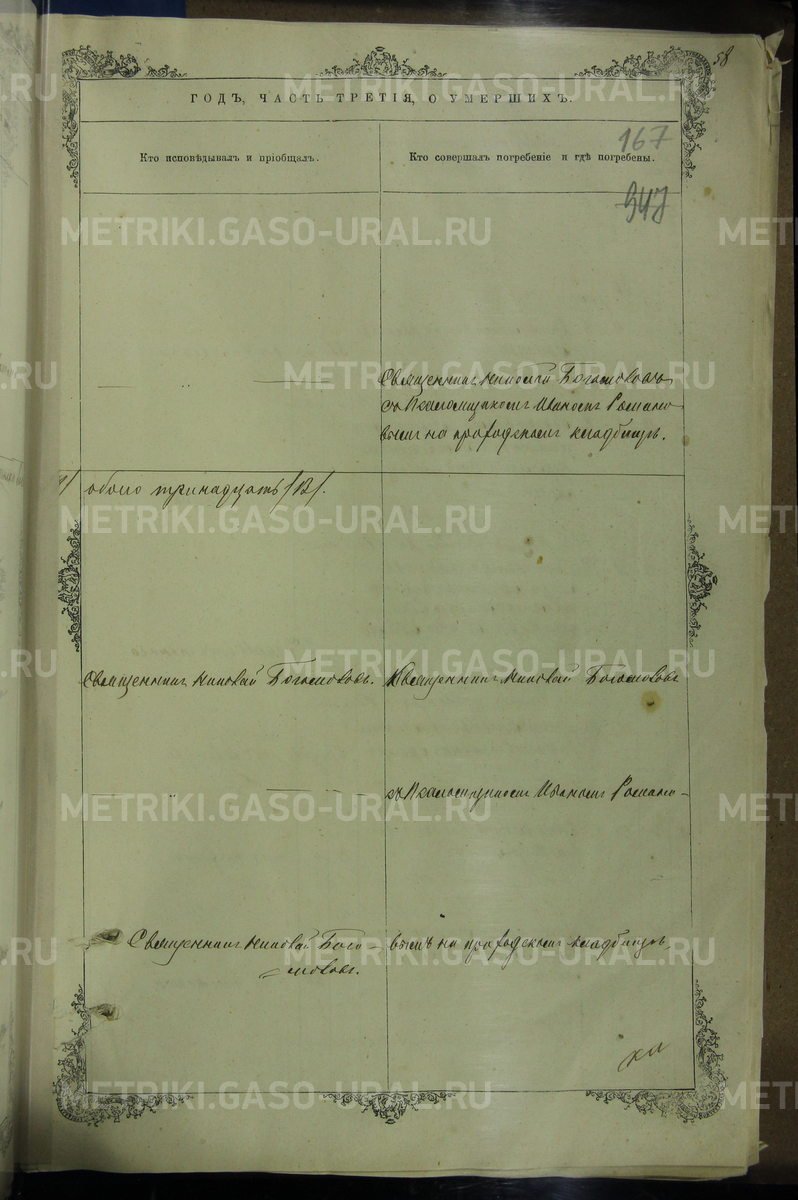 58
ГОДЪ, ЧАСТЬ ТРЕТІЯ, О УМЕРШИХЪ.
167
Кто исповѣдывалъ и пріобщалъ.
Кто совершалъ погребеніе и гдѣ погребены.
947
METRIKI.GASO-URAL.RU
Священникъ Николай Богословъ
съ Псаломщикомъ Иваномъ Романо-
вымъ на приходскомъ кладбищѣ.
обоего тринадцать /13/.
Священникъ Николай Богословъ.
Священникъ Николай Богословъ
съ Псаломщикомъ Иваномъ Романо-
Священникъ Николай Бого-
словъ.
вымъ на приходскомъ кладбищѣ